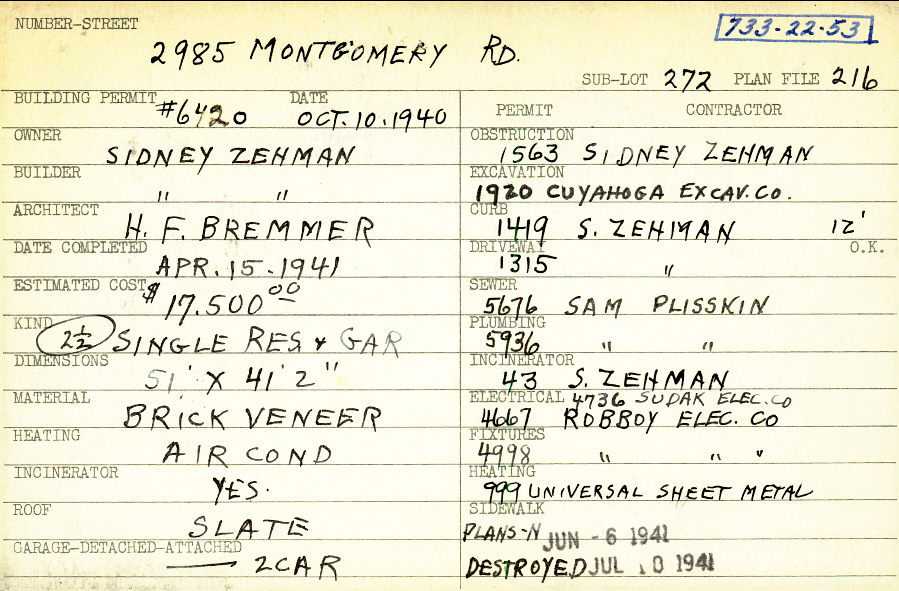 NUMBER-STREET
733-22-53
2985 MONTGOMERY RD.
SUB-LOT 272 PLAN FILE 216
BUILDING PERMIT #6420 DATE OCT.10.1940
OWNER
SIDNEY ZEHMAN
BUILDER
" "
ARCHITECT
H. F. BREMMER
DATE COMPLETED
APR.15.1941
ESTIMATED COST $17.500 00
KIND
2½ SINGLE RES & GAR
DIMENSIONS
51' X 41' 2"
MATERIAL
BRICK VENEER
HEATING
AIR COND
INCINERATOR
YES.
ROOF
SLATE
GARAGE-DETACHED-ATTACHED
— 2CAR
PERMIT CONTRACTOR
OBSTRUCTION
1563 SIDNEY ZEHMAN
EXCAVATION
1920 CUYAHOGA EXCAV.CO.
CURB
1419 S. ZEHMAN 12'
DRIVEWAY O.K.
1315 "
SEWER
5676 SAM PLISSKIN
PLUMBING
5936 " "
INCINERATOR
43 S. ZEHMAN
ELECTRICAL 4736 SUDAK ELEC.CO
4667 ROBBOY ELEC. CO
FIXTURES
4998 " " "
HEATING
999 UNIVERSAL SHEET METAL
SIDEWALK
PLANS-N JUN - 6 1941
DESTROYED JUL 10 1941